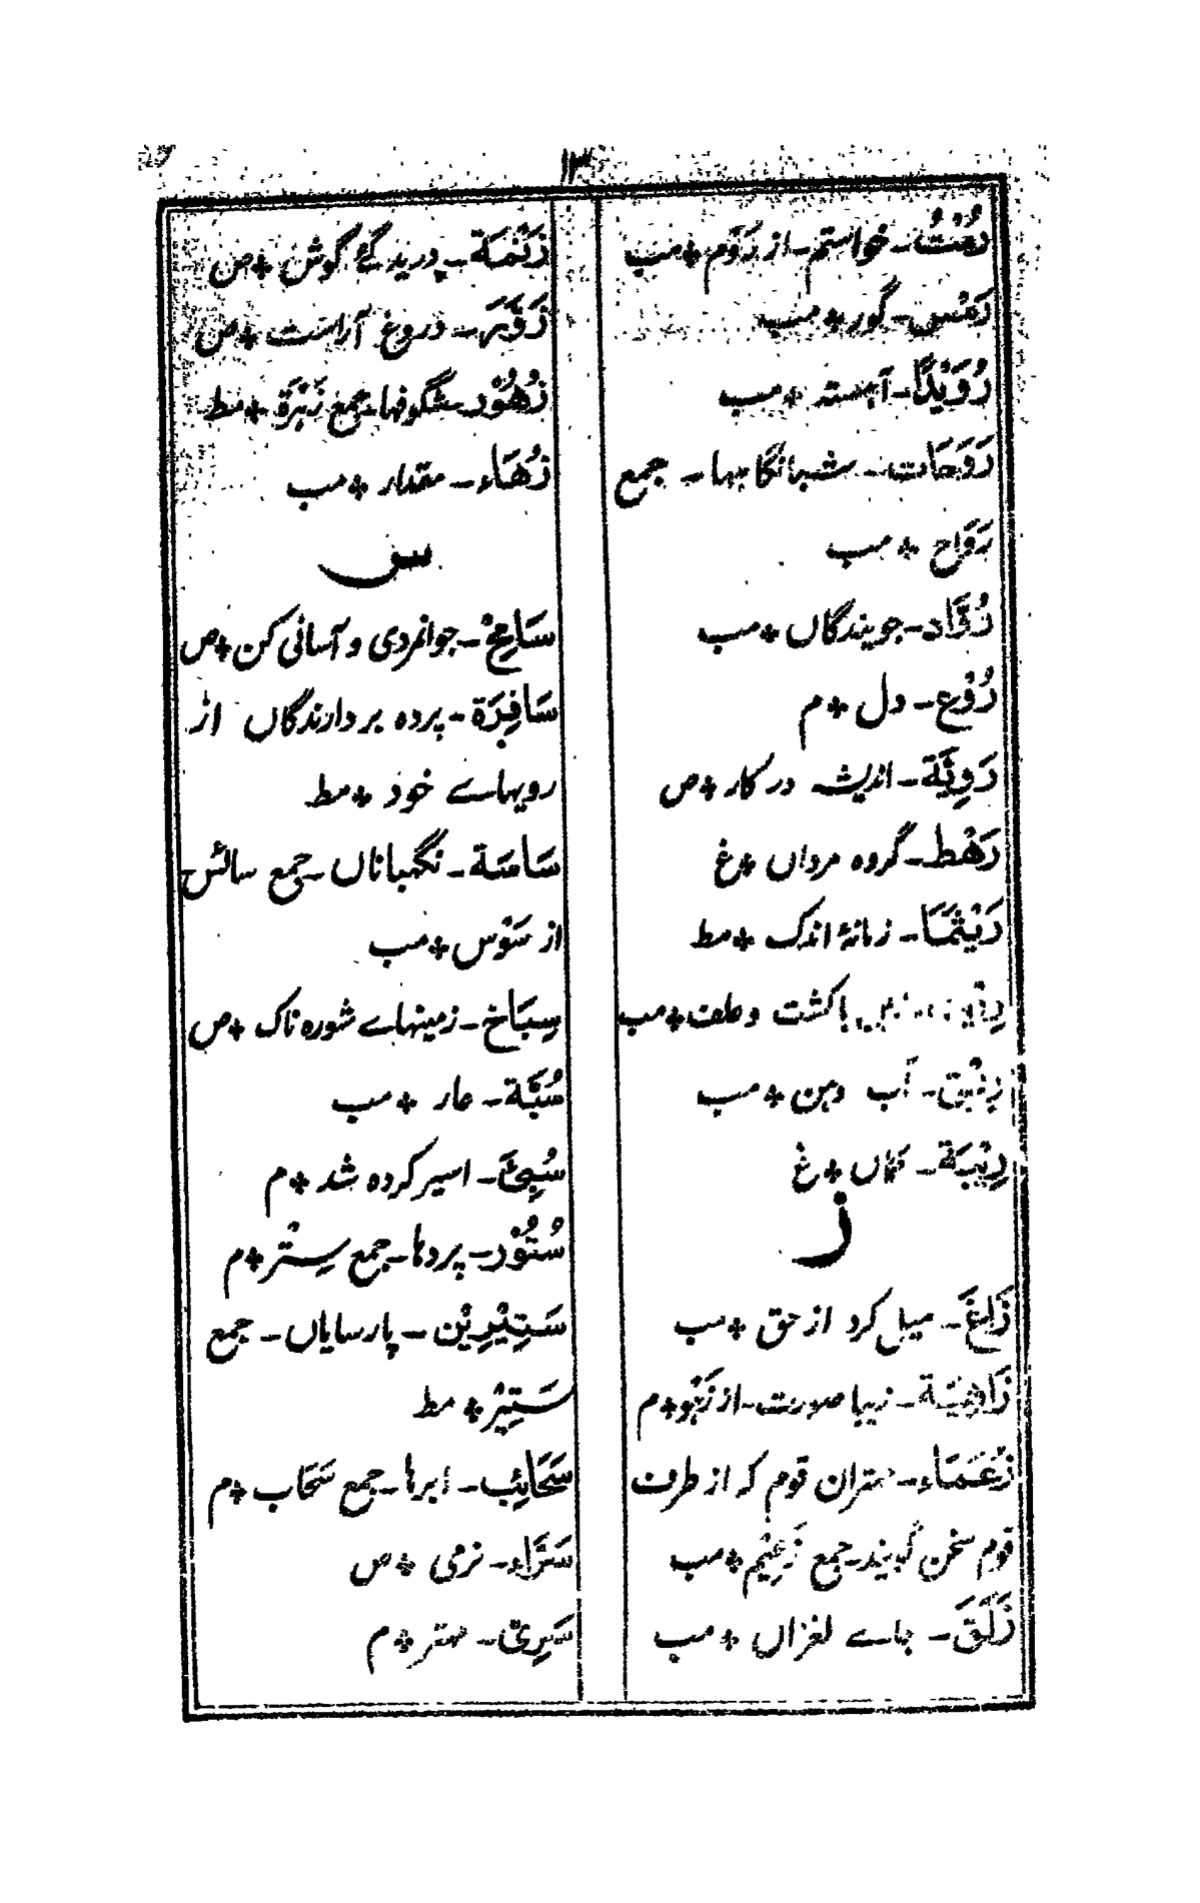 ۱۳
رُمْتُ ـ خواستم ـ از رَوْم * مب
رَمْس ـ گور * مب
رُوَيْدًا ـ آہستہ * مب
رَوَحَات ـ شبانگاہہا ـ جمع
رَوَاح * مب
رُوَّاد ـ جویندگاں * مب
رُوْع ـ دل * م
رَوِيَّة ـ اندیشہ در کار * ص
رَهْط ـ گروہ مرداں * غ
رَيْثَمَا ـ زمانۂ اندک * مط
باکشت و علف * مب
رِيْق ـ آب دہن * مب
رِيْبَة ـ گماں * غ
ز
زَاغَ ـ میل کرد از حق * مب
زَاهِيَة ـ زیبا صورت ـ از زَهْو * م
زُعَمَاء ـ مہتران قوم کہ از طرف
قوم سخن گویند ـ جمع زَعِيْم * مب
زَلَق ـ جاے لغزاں * مب
زَنَمَة ـ دریدگئ گوش * ص
زَوَّرَ ـ دروغ آراست * ص
زُهُوْر ـ شگوفہا ـ جمع زَهْرَة * مط
زُهَاء ـ مقدار * مب
س
سَامِحْ ـ جوانمردی و آسانی کن * ص
سَافِرَة ـ پردہ بردارندگاں از
رویہاے خود * مط
سَاسَة ـ نگہباناں ـ جمع سائس
از سَوْس * مب
سِبَاخ ـ زمینہاے شورہ ناک * ص
سُبَّة ـ عار * مب
سُبِيَ ـ اسیر کردہ شد * م
سُتُوْر ـ پردہا ـ جمع سِتْر * م
سَتِيْرِيْن ـ پارسایاں ـ جمع
سَتِيْر * مط
سَحَائِب ـ ابرہا ـ جمع سَحَاب * م
سَرَّاء ـ نرمی * ص
سَرِیّ ـ مہتر * م